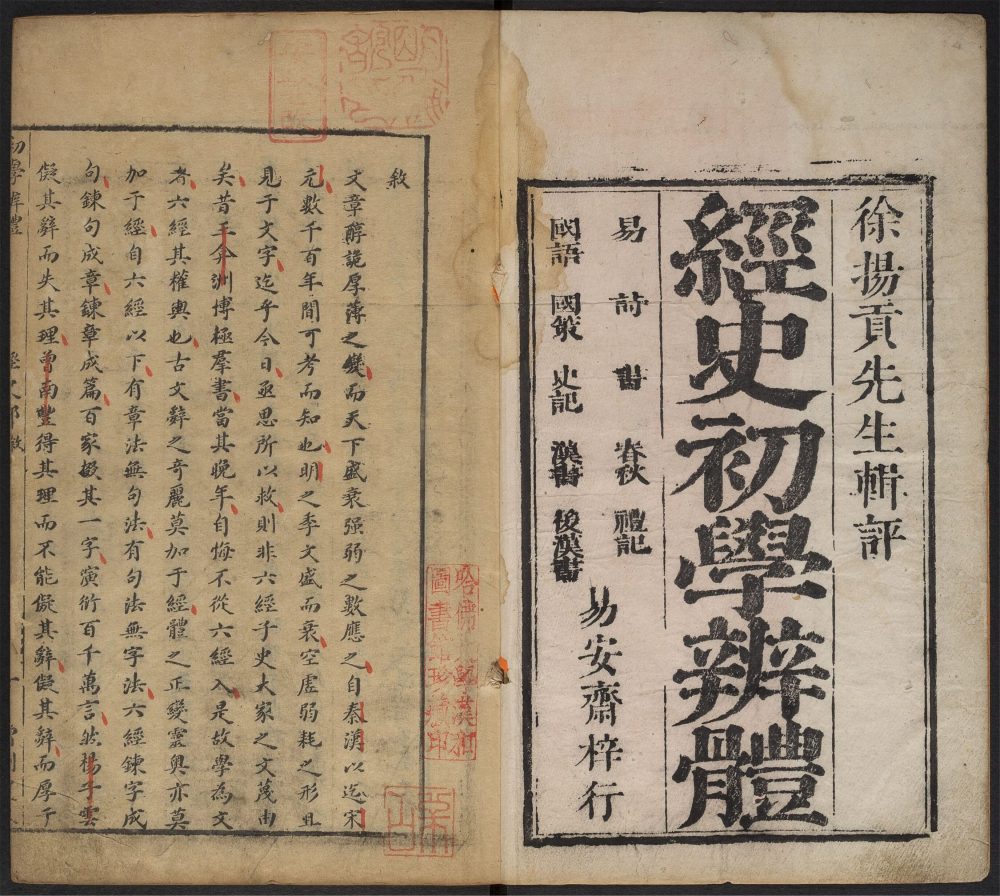 徐揚貢先生輯評
經史初學辨體
易 詩 書 春秋 禮記
國語 國策 史記 漢書 後漢書
易安齋梓行
敘
文章醇詭厚薄之變而天下盛衰强弱之數應之自秦漢以迄宋
元數千百年間可考而知也明之季文盛而衰空虛弱耗之形且
見于文字迄乎今日亟思所以救則非六經子史大家之文蔑由
矣昔王弇洲博極羣書當其晚年自悔不從六經入是故學為文
者六經其權輿也古文辭之奇麗莫加于經體之正變靈奧亦莫
加于經自六經以下有章法無句法有句法無字法六經鍊字成
句鍊句成章鍊章成篇百家掇其一字演衍百千萬言然楊子雲
儗其辭而失其理曾南豐得其理而不能儗其辭儗其辭而厚于
初學辨體
哈佛
圖書